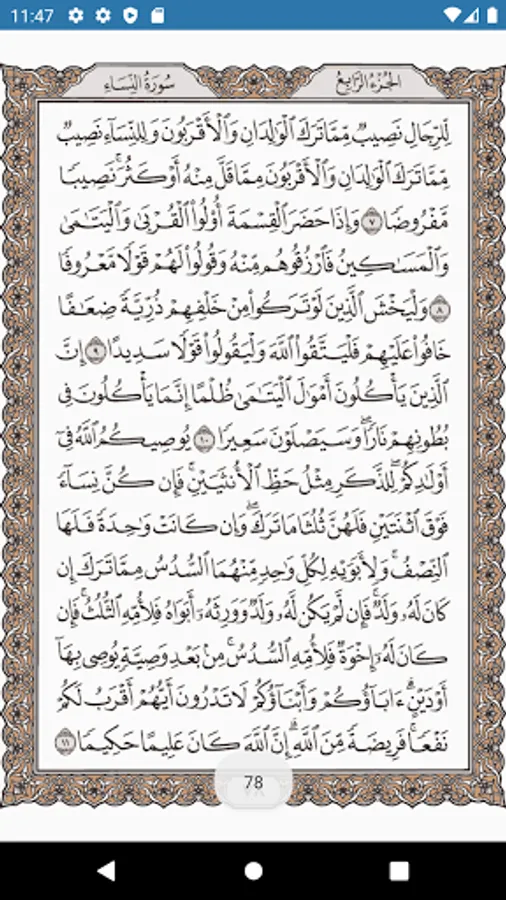 11:47
سُورَةُ النِّسَاءِ
الجُزْءُ الرَّابِعُ
لِّلرِّجَالِ نَصِيبٌ مِّمَّا تَرَكَ ٱلْوَٰلِدَانِ وَٱلْأَقْرَبُونَ وَلِلنِّسَآءِ نَصِيبٌ
مِّمَّا تَرَكَ ٱلْوَٰلِدَانِ وَٱلْأَقْرَبُونَ مِمَّا قَلَّ مِنْهُ أَوْ كَثُرَ ۚ نَصِيبًا
مَّفْرُوضًا ٧ وَإِذَا حَضَرَ ٱلْقِسْمَةَ أُو۟لُوا۟ ٱلْقُرْبَىٰ وَٱلْيَتَٰمَىٰ
وَٱلْمَسَٰكِينُ فَٱرْزُقُوهُم مِّنْهُ وَقُولُوا۟ لَهُمْ قَوْلًا مَّعْرُوفًا
٨ وَلْيَخْشَ ٱلَّذِينَ لَوْ تَرَكُوا۟ مِنْ خَلْفِهِمْ ذُرِّيَّةً ضِعَٰفًا
خَافُوا۟ عَلَيْهِمْ فَلْيَتَّقُوا۟ ٱللَّهَ وَلْيَقُولُوا۟ قَوْلًا سَدِيدًا ٩ إِنَّ
ٱلَّذِينَ يَأْكُلُونَ أَمْوَٰلَ ٱلْيَتَٰمَىٰ ظُلْمًا إِنَّمَا يَأْكُلُونَ فِى
بُطُونِهِمْ نَارًا ۖ وَسَيَصْلَوْنَ سَعِيرًا ١٠ يُوصِيكُمُ ٱللَّهُ فِىٓ
أَوْلَٰدِكُمْ ۖ لِلذَّكَرِ مِثْلُ حَظِّ ٱلْأُنثَيَيْنِ ۚ فَإِن كُنَّ نِسَآءً
فَوْقَ ٱثْنَتَيْنِ فَلَهُنَّ ثُلُثَا مَا تَرَكَ ۖ وَإِن كَانَتْ وَٰحِدَةً فَلَهَا
ٱلنِّصْفُ ۚ وَلِأَبَوَيْهِ لِكُلِّ وَٰحِدٍ مِّنْهُمَا ٱلسُّدُسُ مِمَّا تَرَكَ إِن
كَانَ لَهُۥ وَلَدٌ ۚ فَإِن لَّمْ يَكُن لَّهُۥ وَلَدٌ وَوَرِثَهُۥٓ أَبَوَاهُ فَلِأُمِّهِ ٱلثُّلُثُ ۚ فَإِن
كَانَ لَهُۥٓ إِخْوَةٌ فَلِأُمِّهِ ٱلسُّدُسُ ۚ مِنۢ بَعْدِ وَصِيَّةٍ يُوصِى بِهَآ
أَوْ دَيْنٍ ۗ ءَابَآؤُكُمْ وَأَبْنَآؤُكُمْ لَا تَدْرُونَ أَيُّهُمْ أَقْرَبُ لَكُمْ
نَفْعًا ۚ فَرِيضَةً مِّنَ ٱللَّهِ ۗ إِنَّ ٱللَّهَ كَانَ عَلِيمًا حَكِيمًا ١١
78